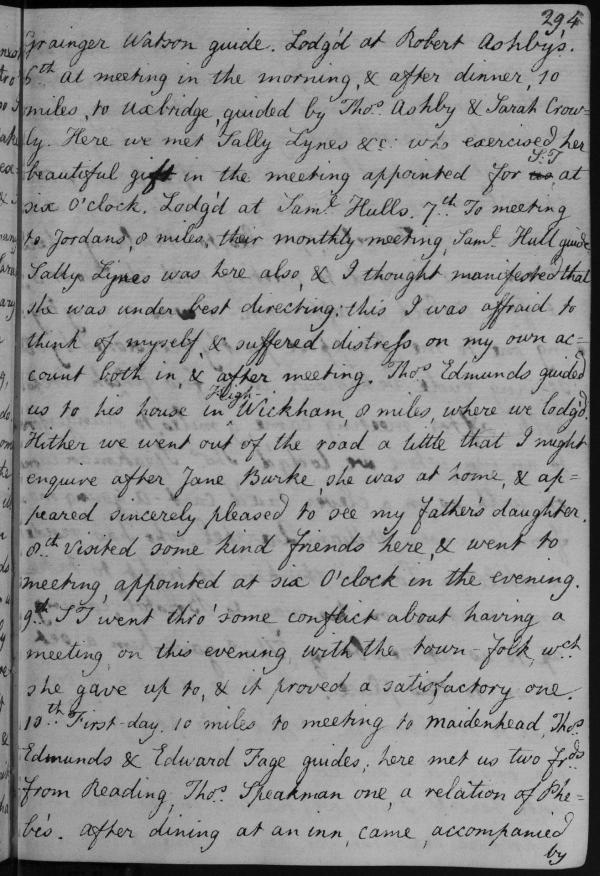 294
Grainger Watson guide. Lodg'd at Robert Ashby's.
6th At meeting in the morning, & after dinner, 10
miles, to Uxbridge, guided by Thos. Ashby & Sarah Crow=
ly. Here we met Sally Lynes &c: who exercised her
beautiful gift in the meeting appointed for us S:T at
six O'clock. Lodg'd at Saml. Hulls. 7th To meeting
to Jordans, 8 miles, their monthly meeting, Saml. Hull guide
Sally Lynes was here also, & I thought manifested that
she was under best directing; this I was affraid to
think of myself, & suffered distress on my own ac=
count both in, & after meeting. Thos. Edmunds guided
us to his house in High-Wickham, 8 miles, where we lodg'd.
Hither we went out of the road a little that I might
enquire after Jane Burke she was at home, & ap=
peared sincerely pleased to see my father's daughter.
8th Visited some kind friends here, & went to
meeting, appointed at six O'clock in the evening.
9th S T went thro' some conflict about having a
meeting on this evening with the town-folk, wch
she gave up to, & it proved a satisfactory one.
10th First-day. 10 miles to meeting to Maidenhead, Thos.
Edmunds & Edward Fage guides; here met us two frds
from Reading, Thos. Speakman one, a relation of Phe=
be's. After dining at an inn, came, accompanied
by